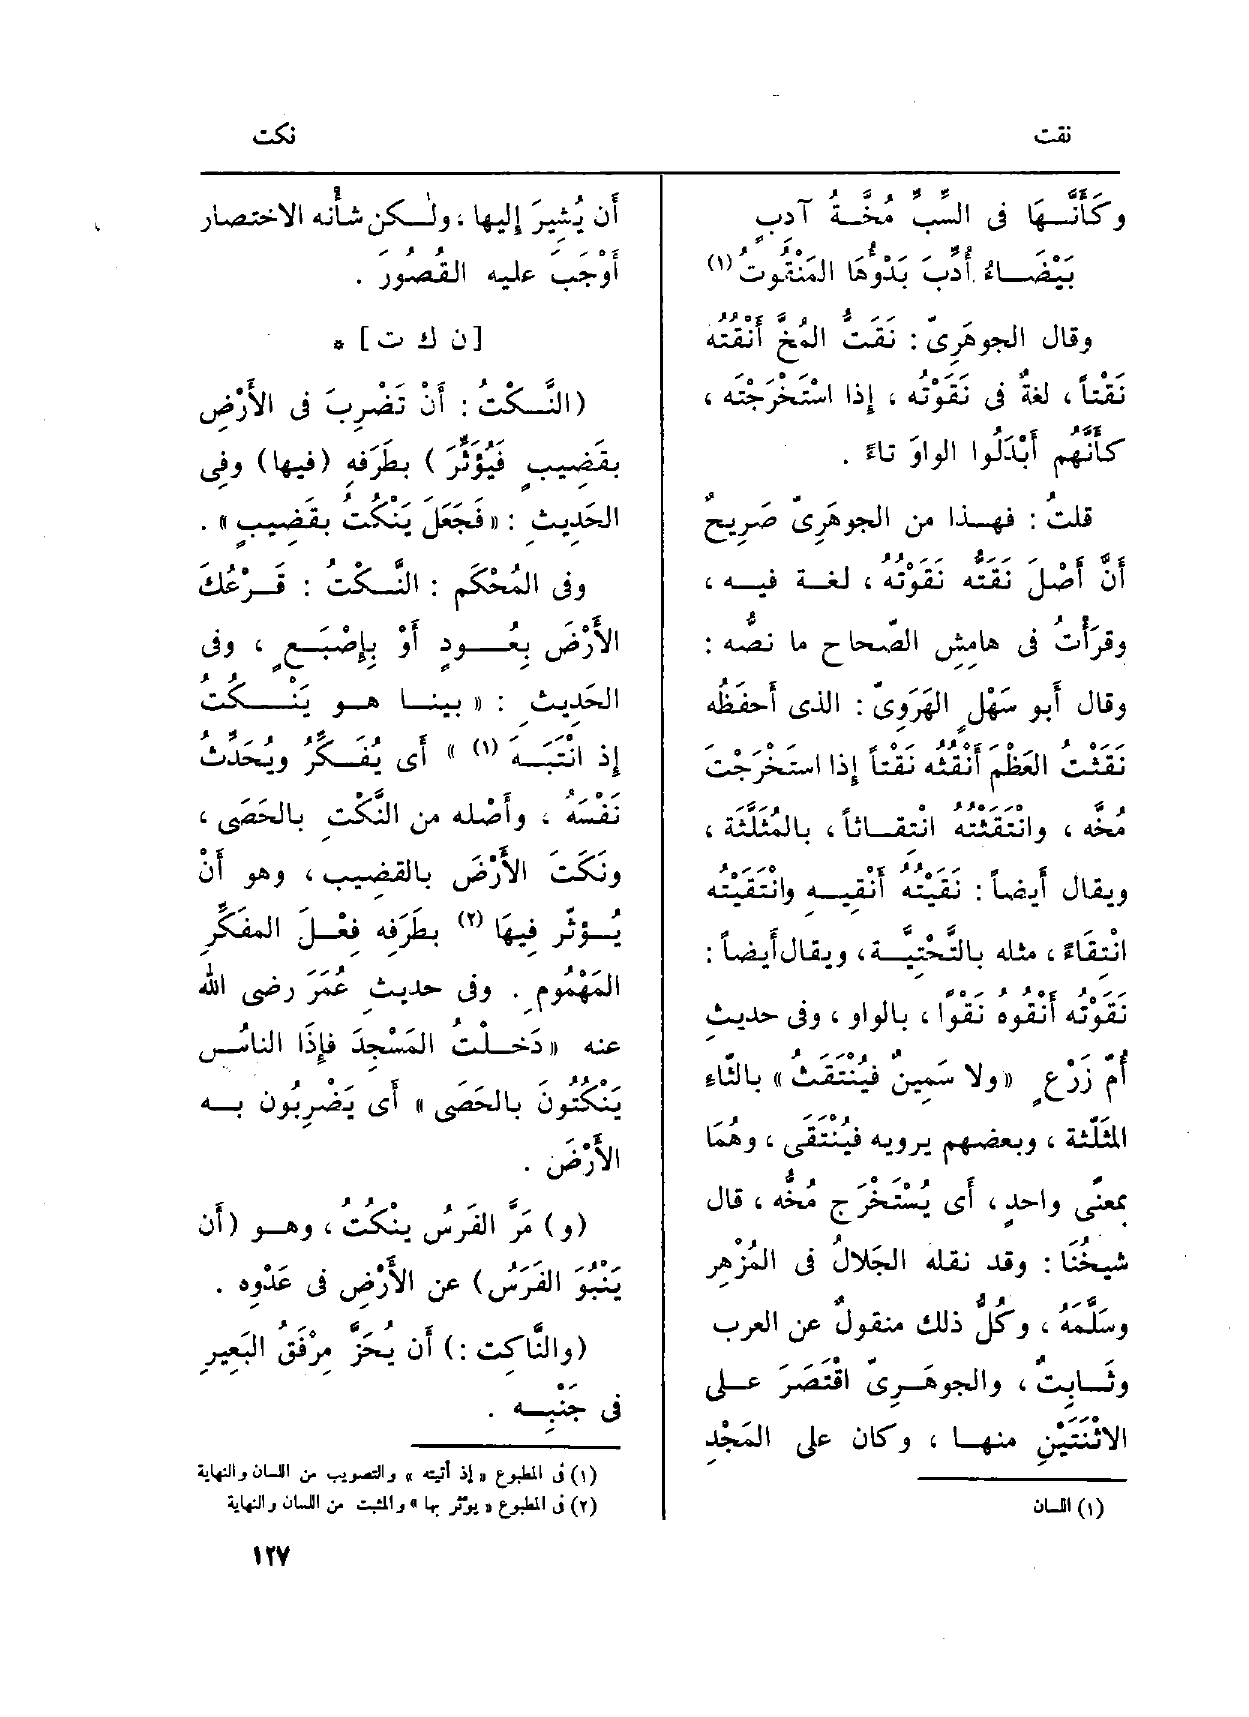 نقت
نكت
وكَأَنَّـهَا فى السِّبِّ مُخَّـةُ آدِبٍ
بَيْضَـاءُ أُدِّبَ بَدْوُهَا المَنْقُوتُ (١)
وقال الجوهَرِىّ : نَقَتُّ المُخَّ أَنْقُتُه
نَقْتاً ، لغةٌ فى نَقَوْتُه ، إذا اسْتَخْرَجْتَه ،
كأَنَّهُم أَبْدَلُوا الواوَ تاءً .
قلتُ : فهـذا من الجوهَرِىّ صَرِيحٌ
أَنَّ أَصْلَ نَقَتُّه نَقَوْتُه ، لغـة فيـه ،
وقرَأْتُ فى هامِشِ الصّحاح ما نصُّه :
وقال أَبو سَهْلٍ الهَرَوِىّ : الذى أَحفَظُه
نَقَثْتُ العَظْمَ أَنْقُثُه نَقْثاً إذا استَخْرَجْتَ
مُخَّه ، وانْتَقَثْتُه انتِقـاثاً ، بالمُثَلَّثَة ،
ويقال أَيضاً : نَقَيْتُه أَنْقِيـه وانْتَقَيْتُه
انْتِقَاءً ، مثله بالتَّحْتِيَّـة ، ويقال أَيضاً :
نَقَوْتُه أَنْقُوه نَقْوًا ، بالواو ، وفى حديثِ
أُمّ زَرْعٍ «ولا سَمِينٌ فيُنْتَقَثُ » بالثّاءِ
المُثَلَّثة ، وبعضهم يرويه فيُنْتَقَى ، وهُمَا
بمعنًى واحدٍ ، أَى يُسْتَخْرَج مُخُّه ، قال
شيخُنَا : وقد نقله الجَلالُ فى المُزْهِر
وسَلَّمَهُ ، وكُلُّ ذلك منقولٌ عن العرب
وثَـابِتٌ ، والجوهَـرِىّ اقْتَصَرَ عـلى
الاثْنَتَيْنِ منهـا ، وكان على المَجْدِ
(١) اللسان
أَن يُشِيرَ إليها ، ولٰـكن شأْنه الاختصار
أَوْجَبَ عليه القُصُورَ .
[ن ك ت] *
(النَّـكْتُ : أَنْ تَضْرِبَ فى الأَرْضِ
بقَضِيبٍ فيُؤَثِّرَ ) بطَرَفِهِ (فيها) وفِى
الحَدِيثِ : «فَجَعَلَ يَنْكُتُ بقَضِيبٍ» .
وفى المُحْكَمِ : النَّـكْتُ : قَـرْعُكَ
الأَرْضَ بِعُـودٍ أَوْ بِإِصْبَـعٍ ، وفى
الحَدِيثِ : « بينـا هـو يَنْـكُتُ
إذِ انْتَبَـهَ (١) » أَى يُفَـكِّرُ ويُحَدِّثُ
نَفْسَهُ ، وأَصْله من النَّكْتِ بالحَصَى ،
ونَكَتَ الأَرْضَ بالقَضِيبِ ، وهو أَنْ
يُـؤثّر فِيهَا (٢) بطَرَفِه فِعْـلَ المفَكِّرِ
المَهْمُومِ . وفى حديثِ عُمَرَ رضى الله
عنه «دَخـلْتُ المَسْجِدَ فإِذَا الناسُ
يَنْكُتُونَ بالحَصَى » أَى يَضْرِبُون بـه
الأَرْضَ .
(و) مَرَّ الفَرَسُ يَنْكُتُ ، وهـو (أَن
يَنْبُوَ الفَرَسُ) عن الأَرْضِ فى عَدْوِه .
(والنَّاكِت :) أَن يُحَزَّ مِرْفَقُ البَعِيرِ
فى جَنْبِـه .
(١) فى المطبوع « إذ أتيته » والتصويب من اللسان والنهاية
(٢) فى المطبوع « يؤثر بها » والمثبت من اللسان والنهاية
١٢٧